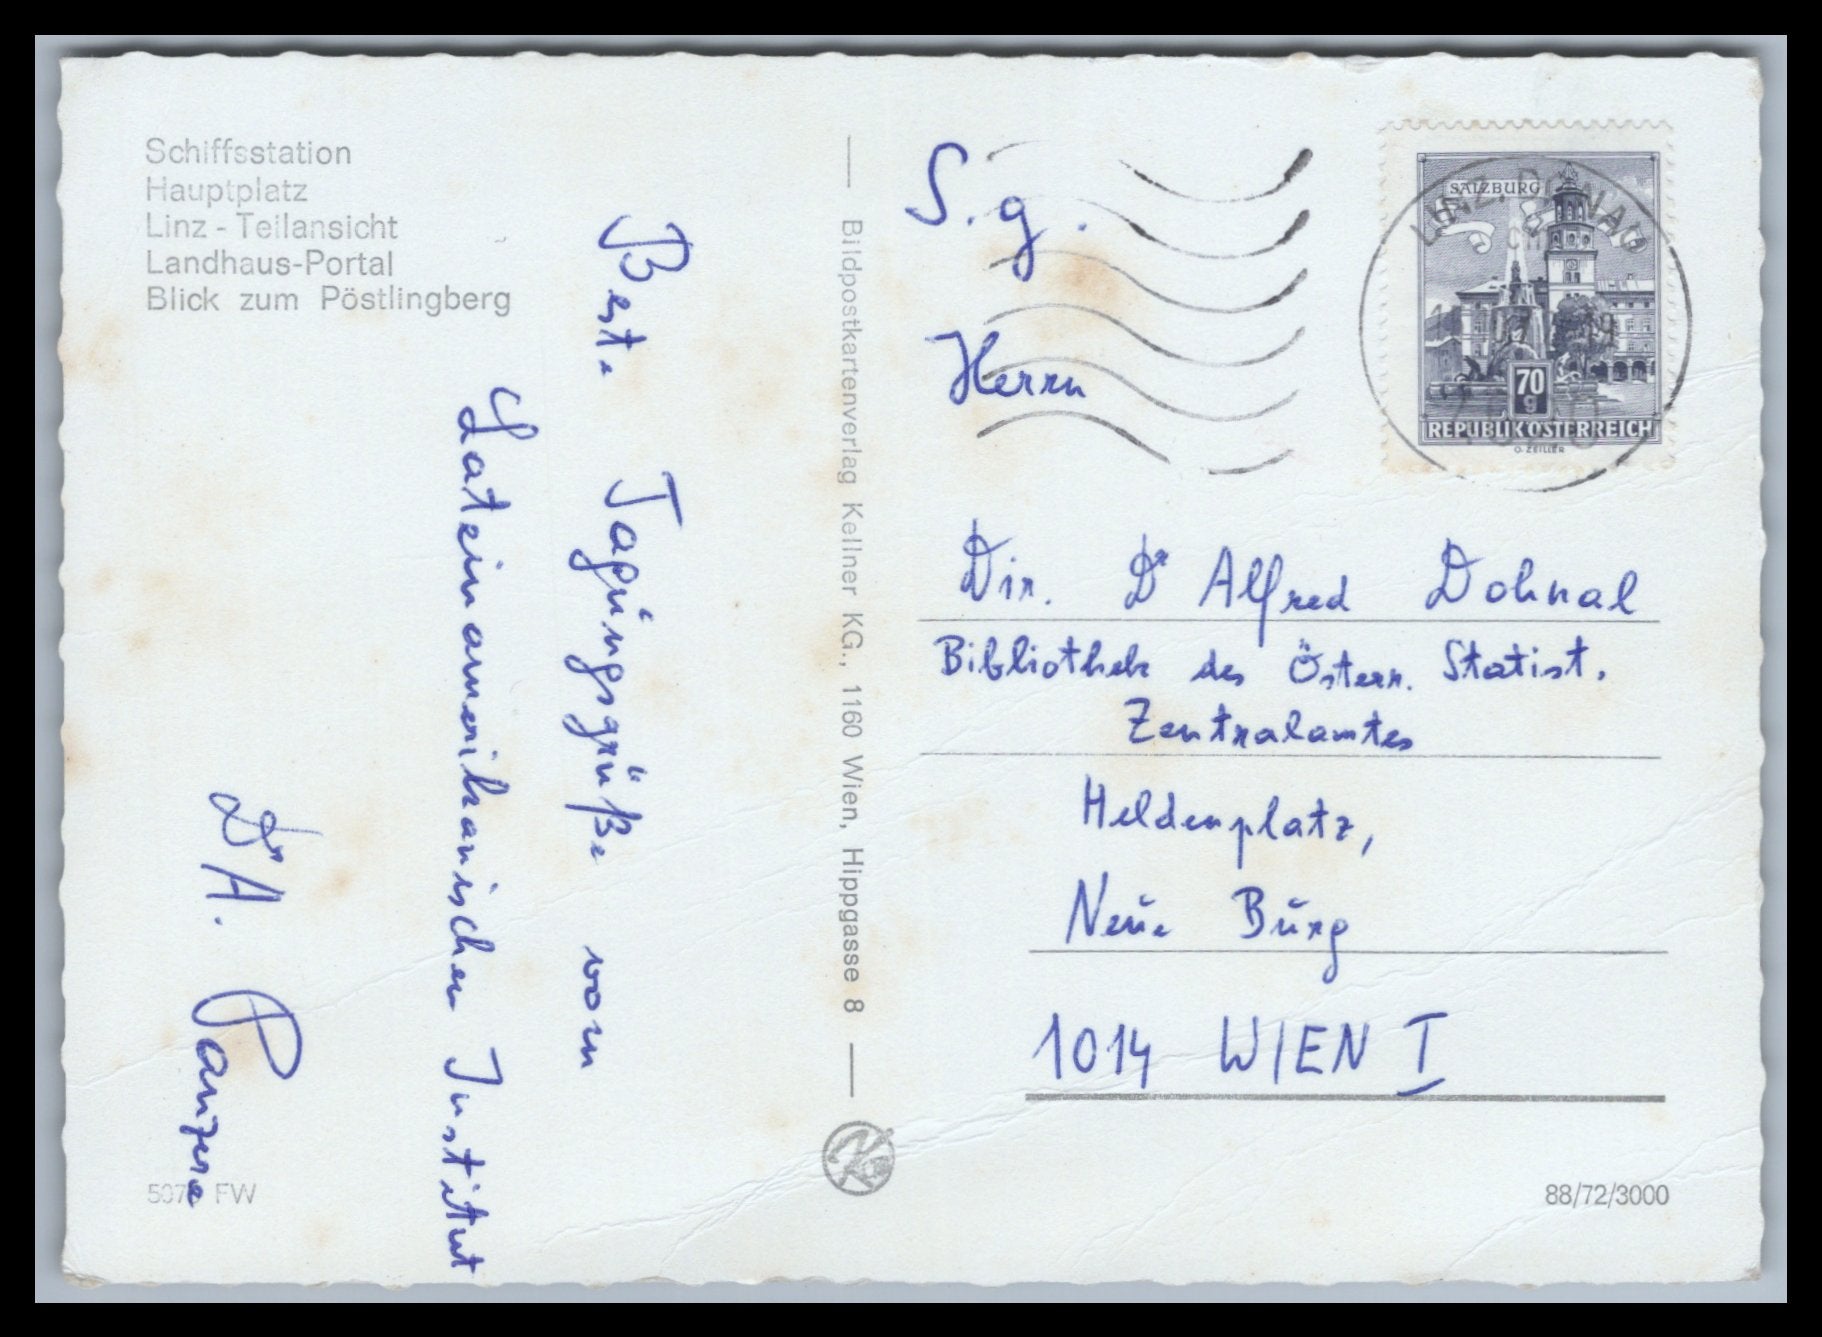 Schiffsstation
Hauptplatz
Linz - Teilansicht
Landhaus-Portal
Blick zum Pöstlingberg
Beste Tagungsgrüße vom
Lateinamerikanischen Institut
Dr A.
FW
Bildpostkartenverlag Kellner KG., 1160 Wien, Hippgasse 8
S. g.
Herrn
Dir. Dr Alfred Dohnal
Bibliothek des Österr. Statist.
Zentralamtes
Heldenplatz,
Neue Burg
1014 WIEN I
88/72/3000
SALZBURG
70
g
REPUBLIK ÖSTERREICH
O. ZEILLER
LINZ, DONAU